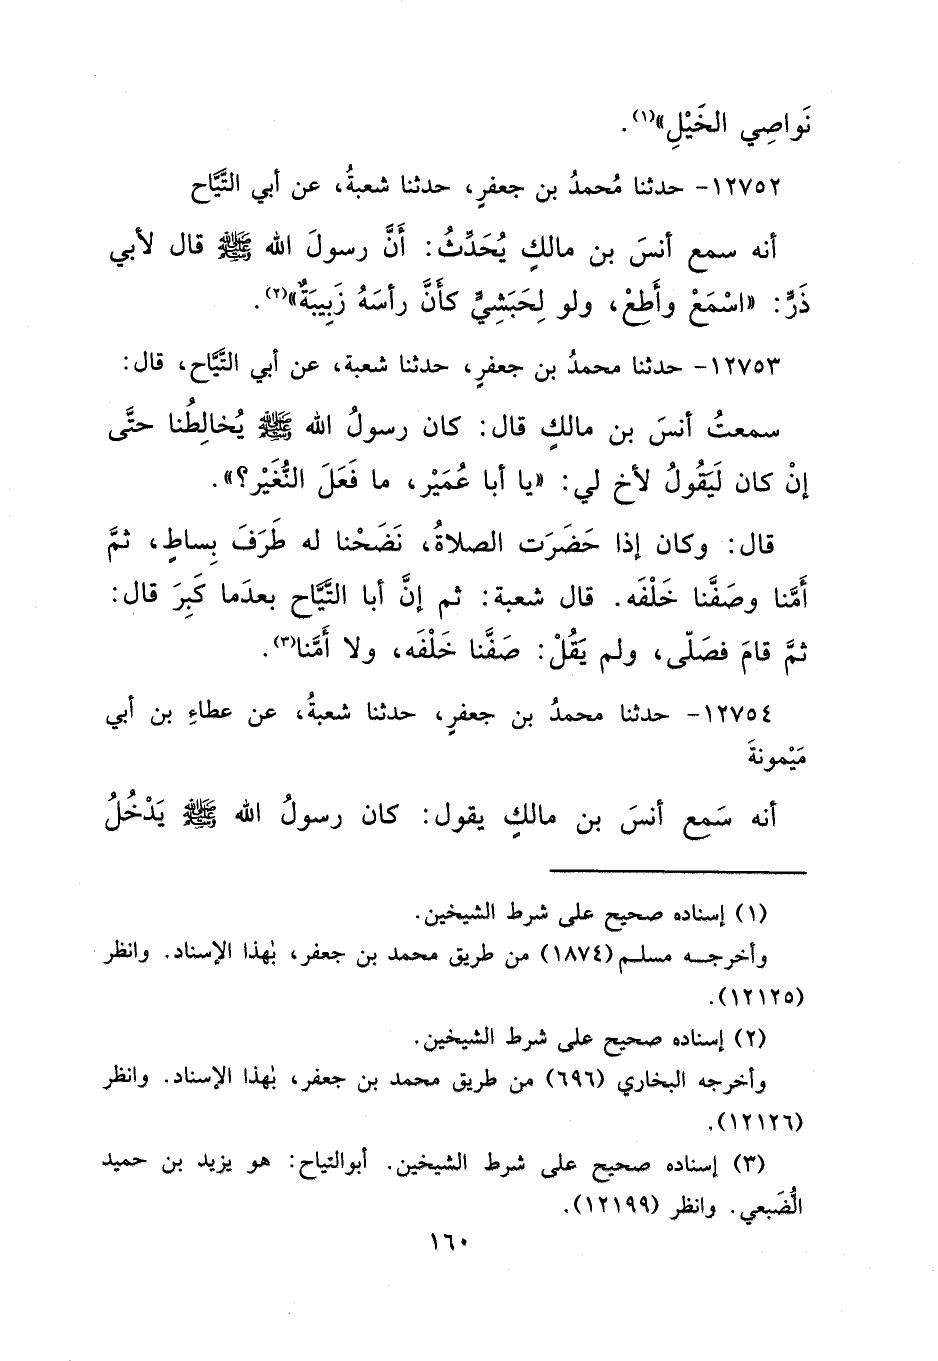 نَواصِي الخَيْلِ»(١).
١٢٧٥٢- حدثنا مُحمدُ بن جعفرٍ، حدثنا شعبةُ، عن أبي التَّيَّاح
أنه سمع أنسَ بن مالكٍ يُحَدِّثُ: أَنَّ رسولَ الله ﷺ قال لأبي
ذَرٍّ: «اسْمَعْ وأَطِعْ، ولو لِحَبَشِيٍّ كأَنَّ رأسَهُ زَبِيبَةٌ»(٢).
١٢٧٥٣- حدثنا محمدُ بن جعفرٍ، حدثنا شعبة، عن أبي التَّيَّاح، قال:
سمعتُ أنسَ بن مالكٍ قال: كان رسولُ الله ﷺ يُخالِطُنا حتَّى
إنْ كان لَيَقُولُ لأخ لي: «يا أبا عُمَيْر، ما فَعَلَ النُّغَيْر؟».
قال: وكان إذا حَضَرَت الصلاةُ، نَضَحْنا له طَرَفَ بِساطٍ، ثمَّ
أَمَّنا وصَفَّنا خَلْفَه. قال شعبة: ثم إنَّ أبا التَّيَّاح بعدَما كَبِرَ قال:
ثمَّ قامَ فصَلّى، ولم يَقُلْ: صَفَّنا خَلْفَه، ولا أَمَّنا(٣).
١٢٧٥٤- حدثنا محمدُ بن جعفرٍ، حدثنا شعبةُ، عن عطاءِ بن أبي
مَيْمونةَ
أنه سَمع أنسَ بن مالكٍ يقول: كان رسولُ الله ﷺ يَدْخُلُ
(١) إسناده صحيح على شرط الشيخين.
وأخرجه مسلم (١٨٧٤) من طريق محمد بن جعفر، بهٰذا الإسناد. وانظر
(١٢١٢٥).
(٢) إسناده صحيح على شرط الشيخين.
وأخرجه البخاري (٦٩٦) من طريق محمد بن جعفر، بهٰذا الإسناد. وانظر
(١٢١٢٦).
(٣) إسناده صحيح على شرط الشيخين. أبوالتياح: هو يزيد بن حميد
الضُّبَعي. وانظر (١٢١٩٩).
١٦٠